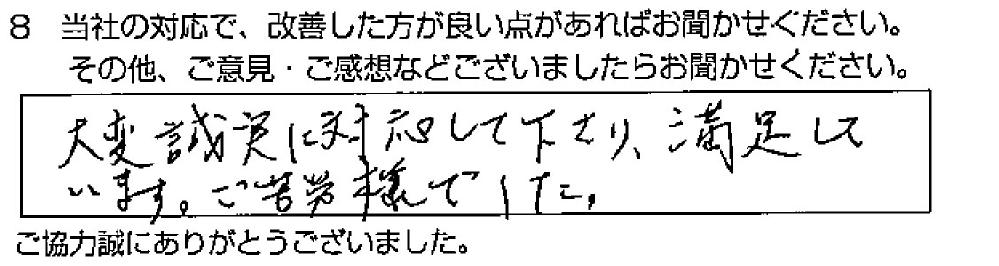 8 当社の対応で、改善した方が良い点があればお聞かせください。
その他、ご意見・ご感想などございましたらお聞かせください。
大変誠実に対応して下さり、満足して
います。ご苦労様でした。
ご協力誠にありがとうございました。